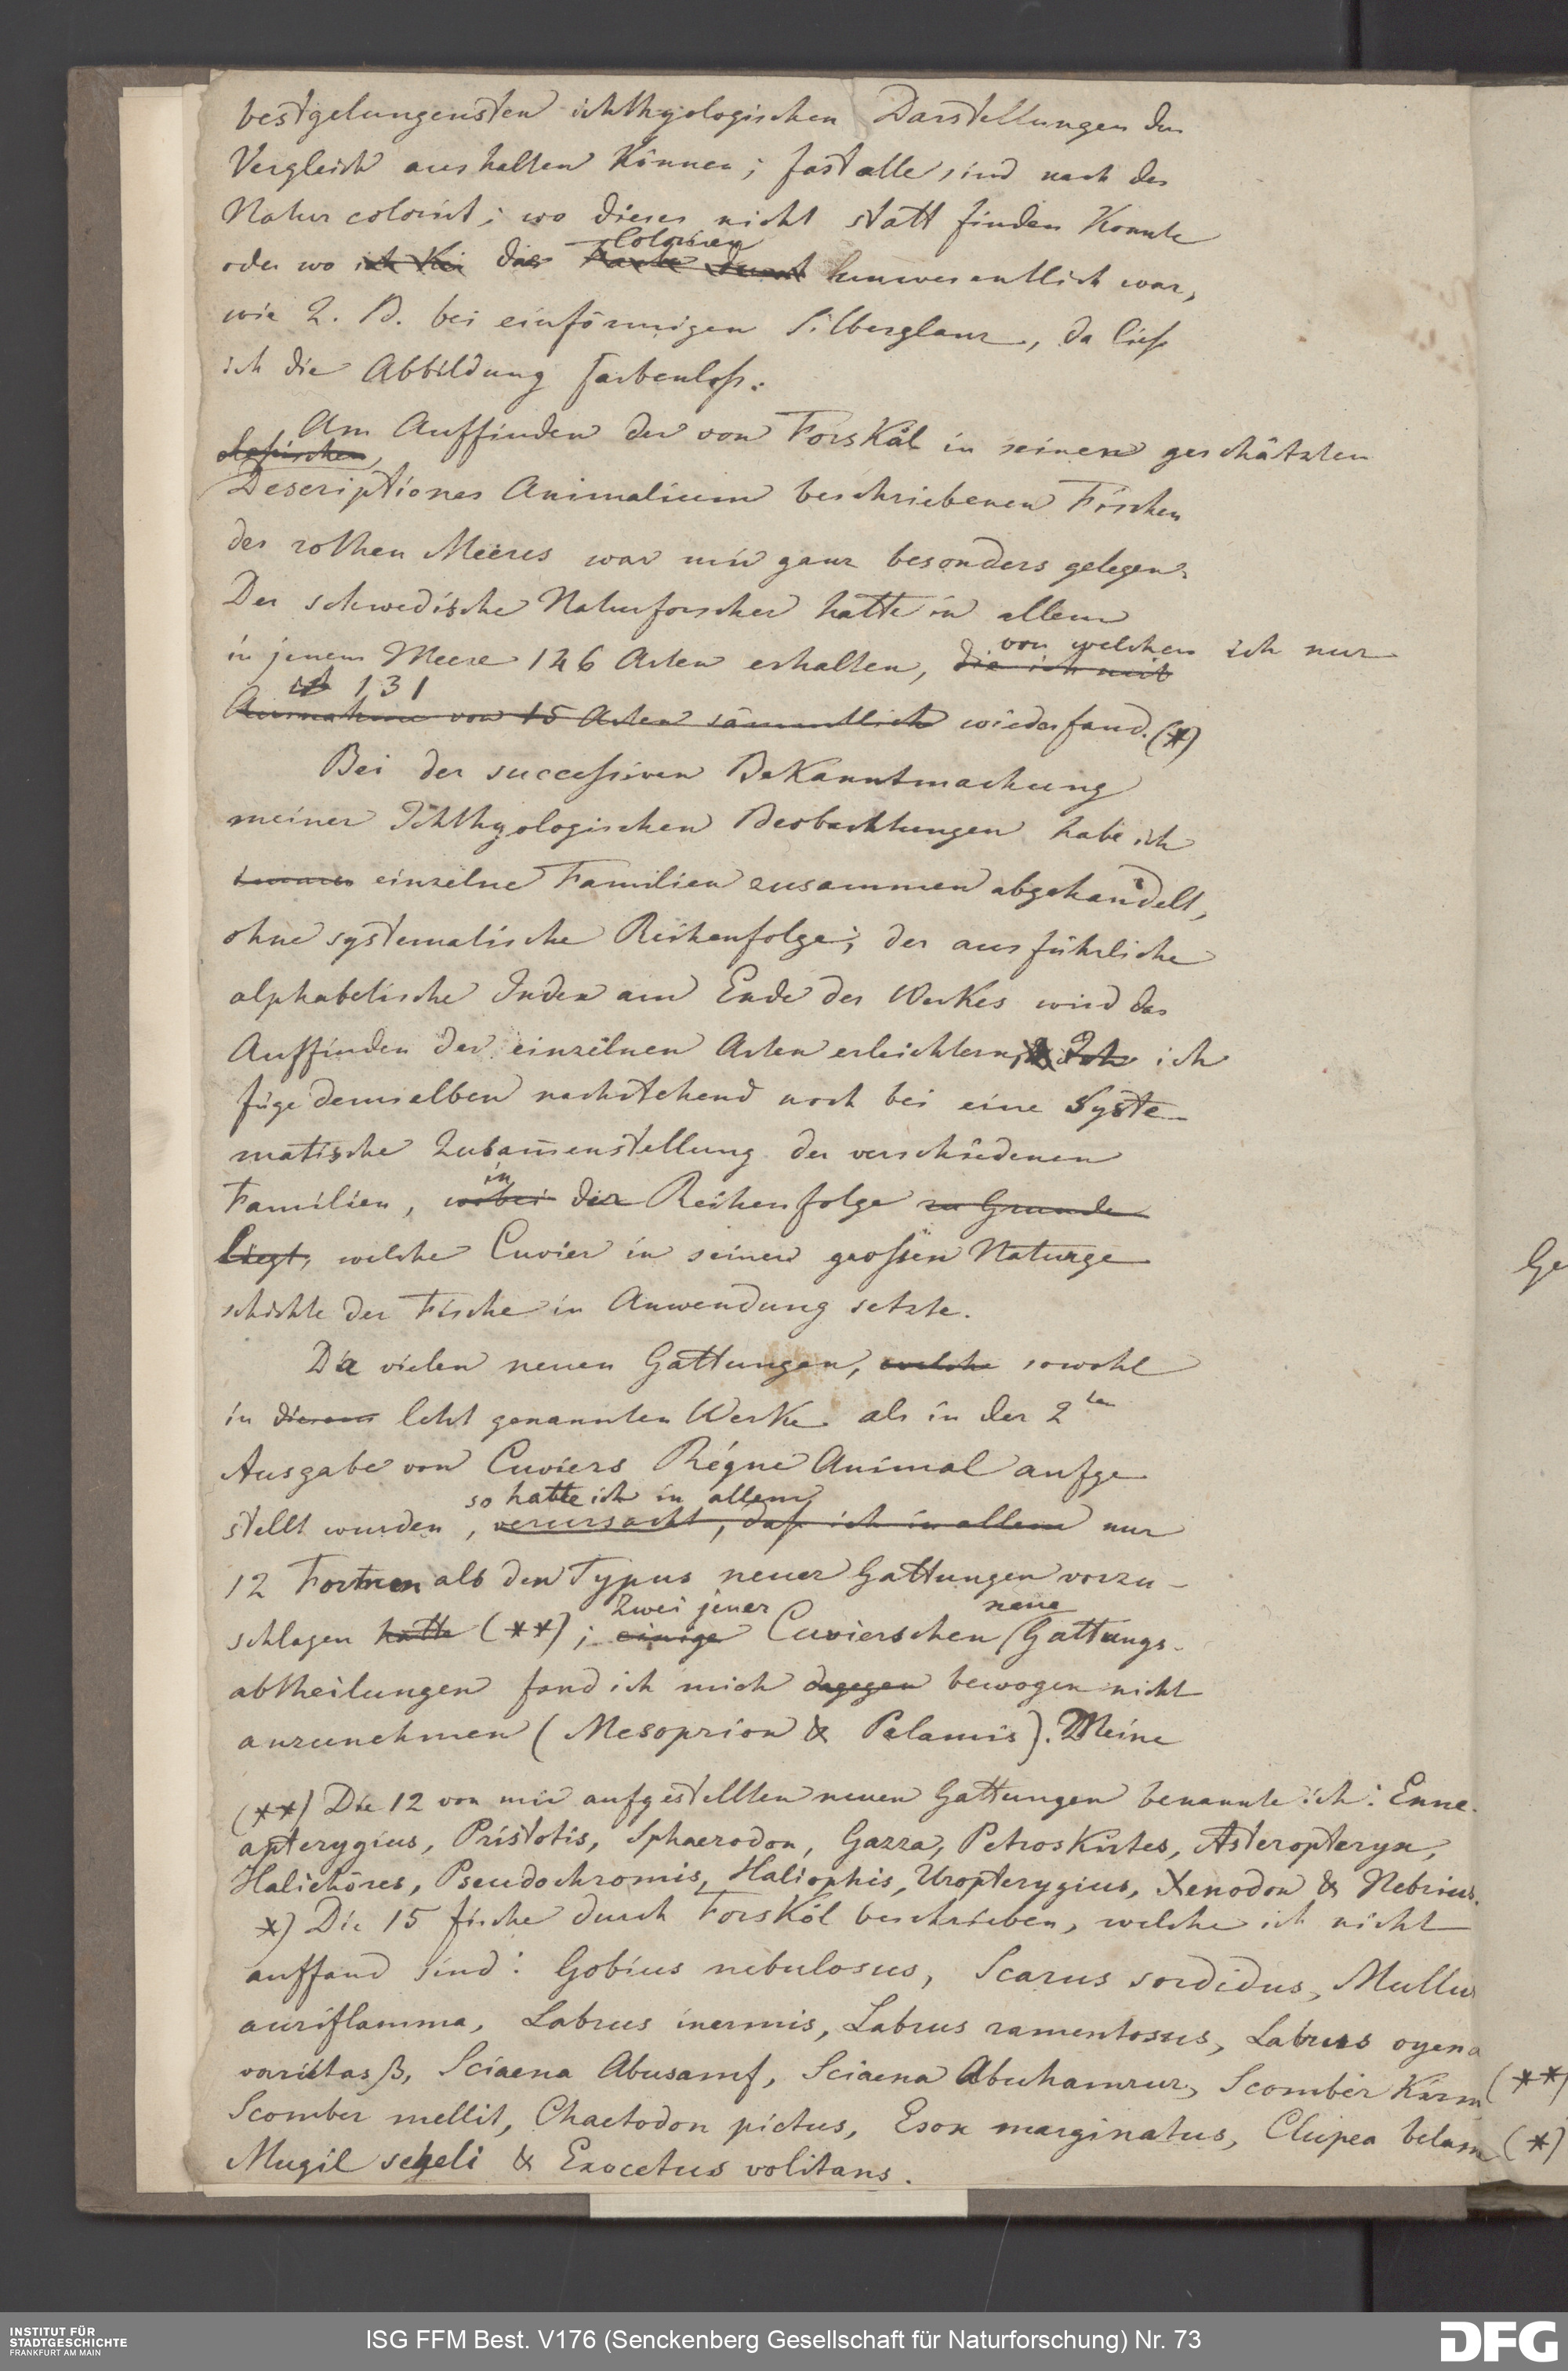 bestgelungensten ichthyologischen Darstellungen den
Vergleich aushalten können; fast alle sind nach der
Natur colorirt; wo dieses nicht statt finden konnte
Coloriren
oder wo ich das unwesentlich war,
wie z. B. bei einförmigen Silberglanz, da liess
ich die Abbildung farbenloss.
Am Auffinden der von Forskål in seinen geschätzten
classischen,
Descriptiones Animalium beschriebenen Fischen
des rothen Meeres war mir ganz besonders gelegen.
Der schwedische Naturforscher hatte in allem
von welchen ich nur
in jenem Meere 146 Arten erhalten, die ich mit
ich 131
Ausnahme von 15 Arten sämmtlich wiederfand. (*)
Bei der successiven Bekanntmachung
meiner Ichthyologischen Beobachtungen habe ich
immer einzelne Familien zusammen abgehandelt,
ohne systematische Reihenfolge; der ausführliche
alphabetische Index am Ende des Werkes wird das
Auffinden der einzelnen Arten erleichtern, Ich ich
füge demselben nachstehend noch bei eine Syste-
matische Zusam̄enstellung der verschiedenen
in
Familien, wobei der Reihenfolge zu Grunde
liegt, welche Cuvier in seiner grossen Naturge
schichte der Fische in Anwendung setzte.
Da vielen neuen Gattungen, welche sowohl
in diesem letzt genannten Werke als in der 2ten
Ausgabe von Cuviers Régne Animal aufge
so hatte ich in allem
stellt wurden, verursacht, dass ich in allem nur
12 Formen als den Typus neuer Gattungen vorzu-
zwei jener neue
schlagen hatte (**); einige Cuvierschen Gattungs-
abtheilungen fand ich mich dagegen bewogen nicht
anzunehmen (Mesoprion & Pelamis). Meine
(**) Die 12 von mir aufgestellten neuen Gattungen benannte ich: Enne-
apterygius, Pristotis, Sphaerodon, Gazza, Petroskirtes, Asteropteryx,
Halichöres, Pseudochromis, Haliophis, Uropterygius, Xenodon & Nebrius.
*) Die 15 fische durch Forskål beschrieben, welche ich nicht
auffand sind: Gobius nebulosus, Scarus sordidus, Mullus
auriflamma, Labrus inermis, Labrus ramentosus, Labrus oyena
varietas β, Sciaena Abusamf, Sciaena Abuhamrur, Scomber Karm (**)
Scomber mellit, Chaetodon pictus, Esox marginatus, Clupea belam (*)
Mugil seheli & Exocetus volitans.
Ge
INSTITUT FÜR
STADTGESCHICHTE
FRANKFURT AM MAIN
ISG FFM Best. V176 (Senckenberg Gesellschaft für Naturforschung) Nr. 73
DFG